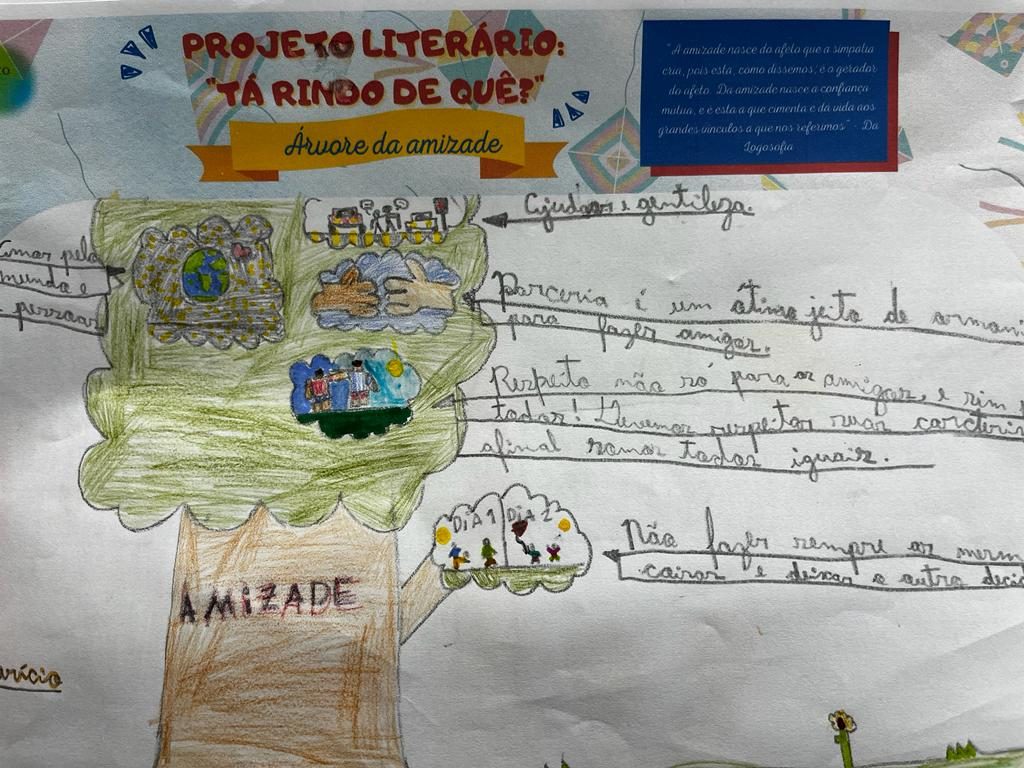 PROJETO LITERÁRIO:
"TÁ RINDO DE QUÊ?"
Árvore da amizade
"A amizade nasce do afeto que a simpatia
cria, pois esta, como dissemos, é o gerador
do afeto. Da amizade nasce a confiança
mutua, e é esta a que cimenta e dá vida aos
grandes vinculos a que nos referimos" - Da
Logosofia
Ajudar e gentileza.
Amar pelo
mundo e
pessoas
Parceria é um ótimo jeito de
para fazer amigos.
Respeito não só para os amigos, e sim
todos! Devemos respeitar suas
afinal somos todos iguais.
DiA 1 DiA 2
Não fazer sempre as
coisas e deixar o outro
AMIZADE